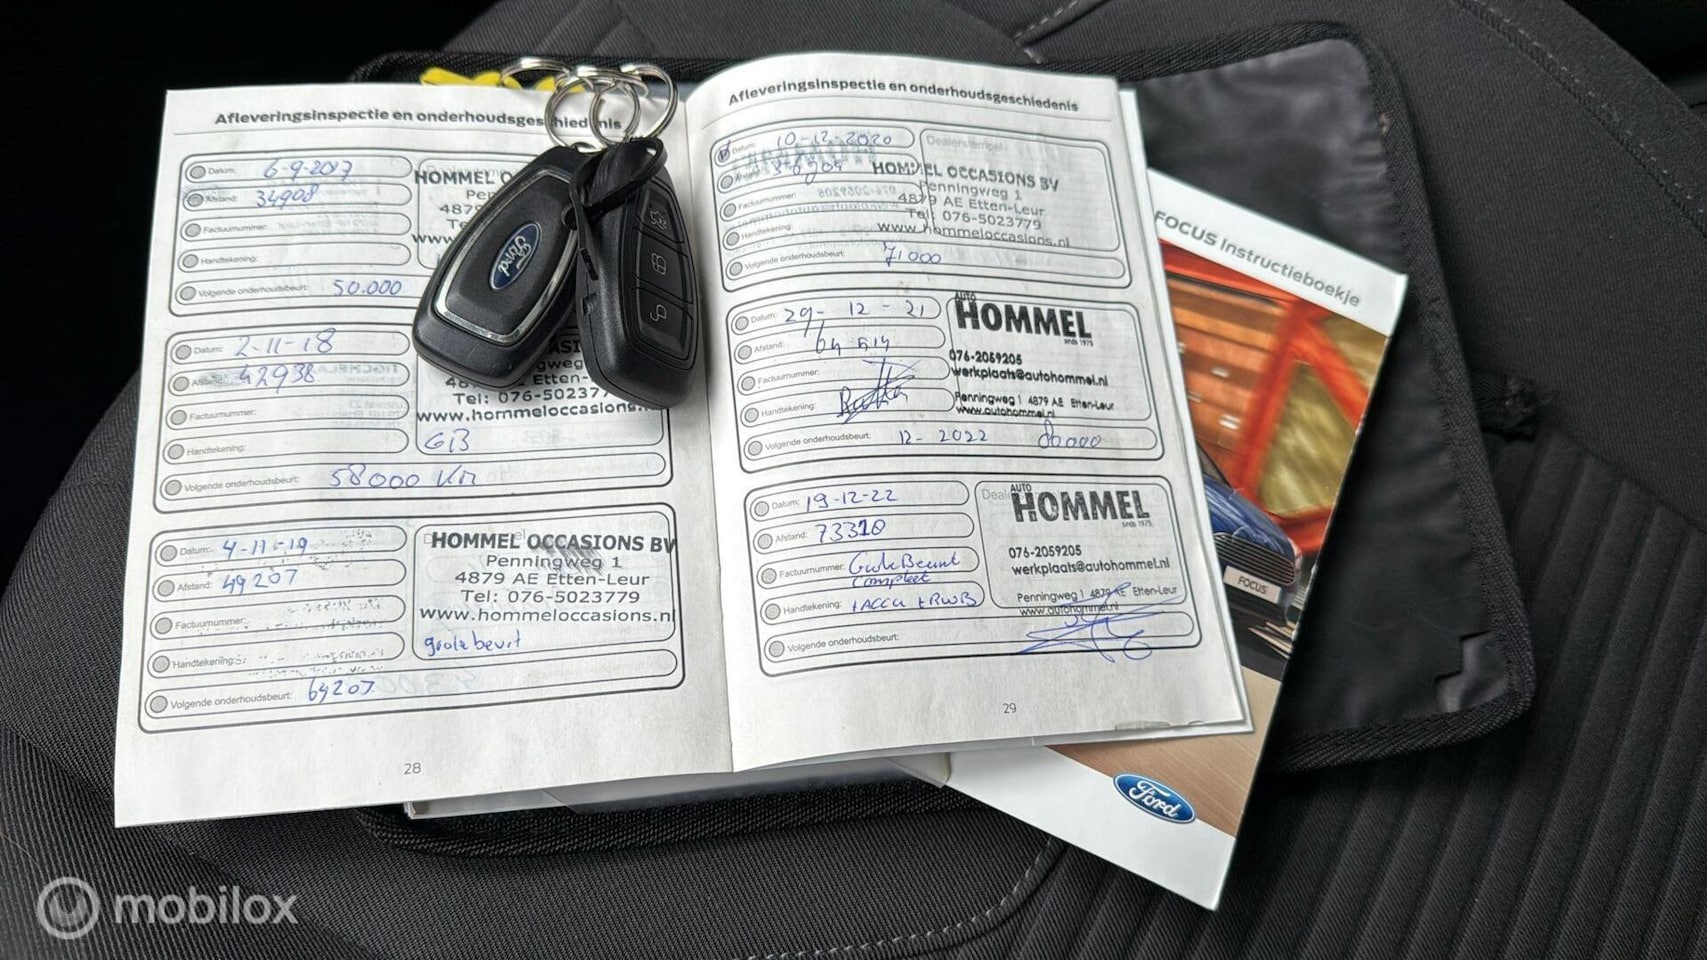 Afleveringsinspectie en onderhoudsgeschiedenis
Datum: 6-9-2017
Afstand: 34908
HOMMEL O
Factuurnummer:
4879
www.
Handtekening:
Volgende onderhoudsbeurt: 50.000
Datum: 2-11-18
Afstand: 42938
Factuurnummer:
Etten-Leur
Tel: 076-5023779
www.hommeloccasions.n
Handtekening:
GB
Volgende onderhoudsbeurt: 58000 km
Datum: 4-11-19
Afstand: 49207
Factuurnummer:
Handtekening:
HOMMEL OCCASIONS BV
Penningweg 1
4879 AE Etten-Leur
Tel: 076-5023779
www.hommeloccasions.nl
grote beurt
Volgende onderhoudsbeurt: 64207
28
Ford
Afleveringsinspectie en onderhoudsgeschiedenis
Datum: 10-12-2020
Dealerstempel
Factuurnummer:
Handtekening:
HOMMEL OCCASIONS BV
Penningweg 1
4879 AE Etten-Leur
Tel: 076-5023779
www.hommeloccasions.nl
Volgende onderhoudsbeurt: 71000
Datum: 29-12-21
Afstand: 64514
Factuurnummer:
Handtekening:
AUTO
HOMMEL
sinds 1975
076-2059205
werkplaats@autohommel.nl
Penningweg 1 4879 AE Etten-Leur
www.autohommel.nl
Volgende onderhoudsbeurt: 12-2022 80000
Datum: 19-12-22
Afstand: 73310
Factuurnummer: Grote Beurt
Compleet
Handtekening: + ACCU + RWB
AUTO
HOMMEL
sinds 1975
076-2059205
werkplaats@autohommel.nl
Penningweg 1 4879 AE Etten-Leur
www.autohommel.nl
Volgende onderhoudsbeurt:
29
FOCUS Instructieboekje
FOCUS
Ford
mobilox